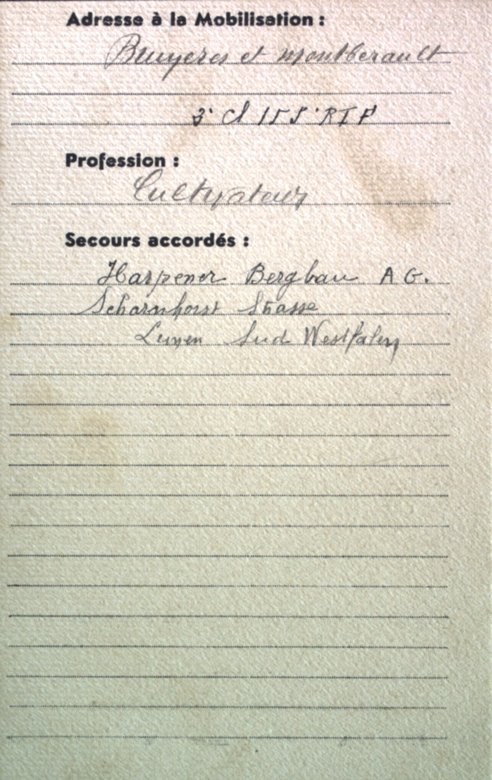 Adresse à la Mobilisation :
Bruyeres et montberault
3e Cl 155e RIF
Profession :
Cultivateur
Secours accordés :
Harpener Bergbau A G.
Scharnhorst Strasse
Lunen Sud Westfalen